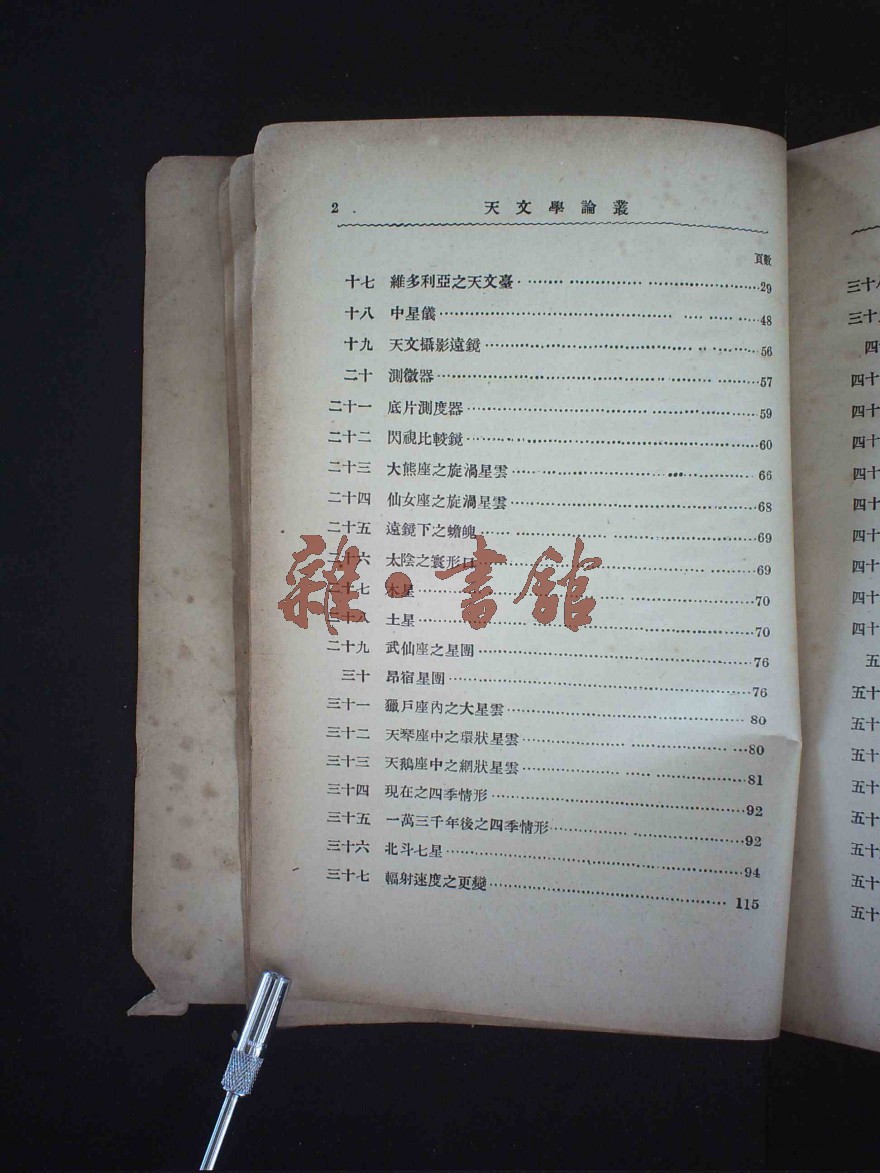 2 天文學論叢
頁數
十七 維多利亞之天文臺 29
十八 中星儀 48
十九 天文攝影遠鏡 56
二十 測微器 57
二十一 底片測度器 59
二十二 閃視比較鏡 60
二十三 大熊座之旋渦星雲 66
二十四 仙女座之旋渦星雲 68
二十五 遠鏡下之蟾魄 69
二十六 太陰之寰形口 69
二十七 木星 70
二十八 土星 70
二十九 武仙座之星團 76
三十 昂宿星團 76
三十一 獵戶座內之大星雲 80
三十二 天琴座中之環狀星雲 80
三十三 天鵝座中之網狀星雲 81
三十四 現在之四季情形 92
三十五 一萬三千年後之四季情形 92
三十六 北斗七星 94
三十七 輻射速度之更變 115
雜·書館
三十
三十
四
四十
四十
四十
四十
四十
四十
四十
四十
四十
五
五十
五十
五十
五十
五十
五十
五十
五十